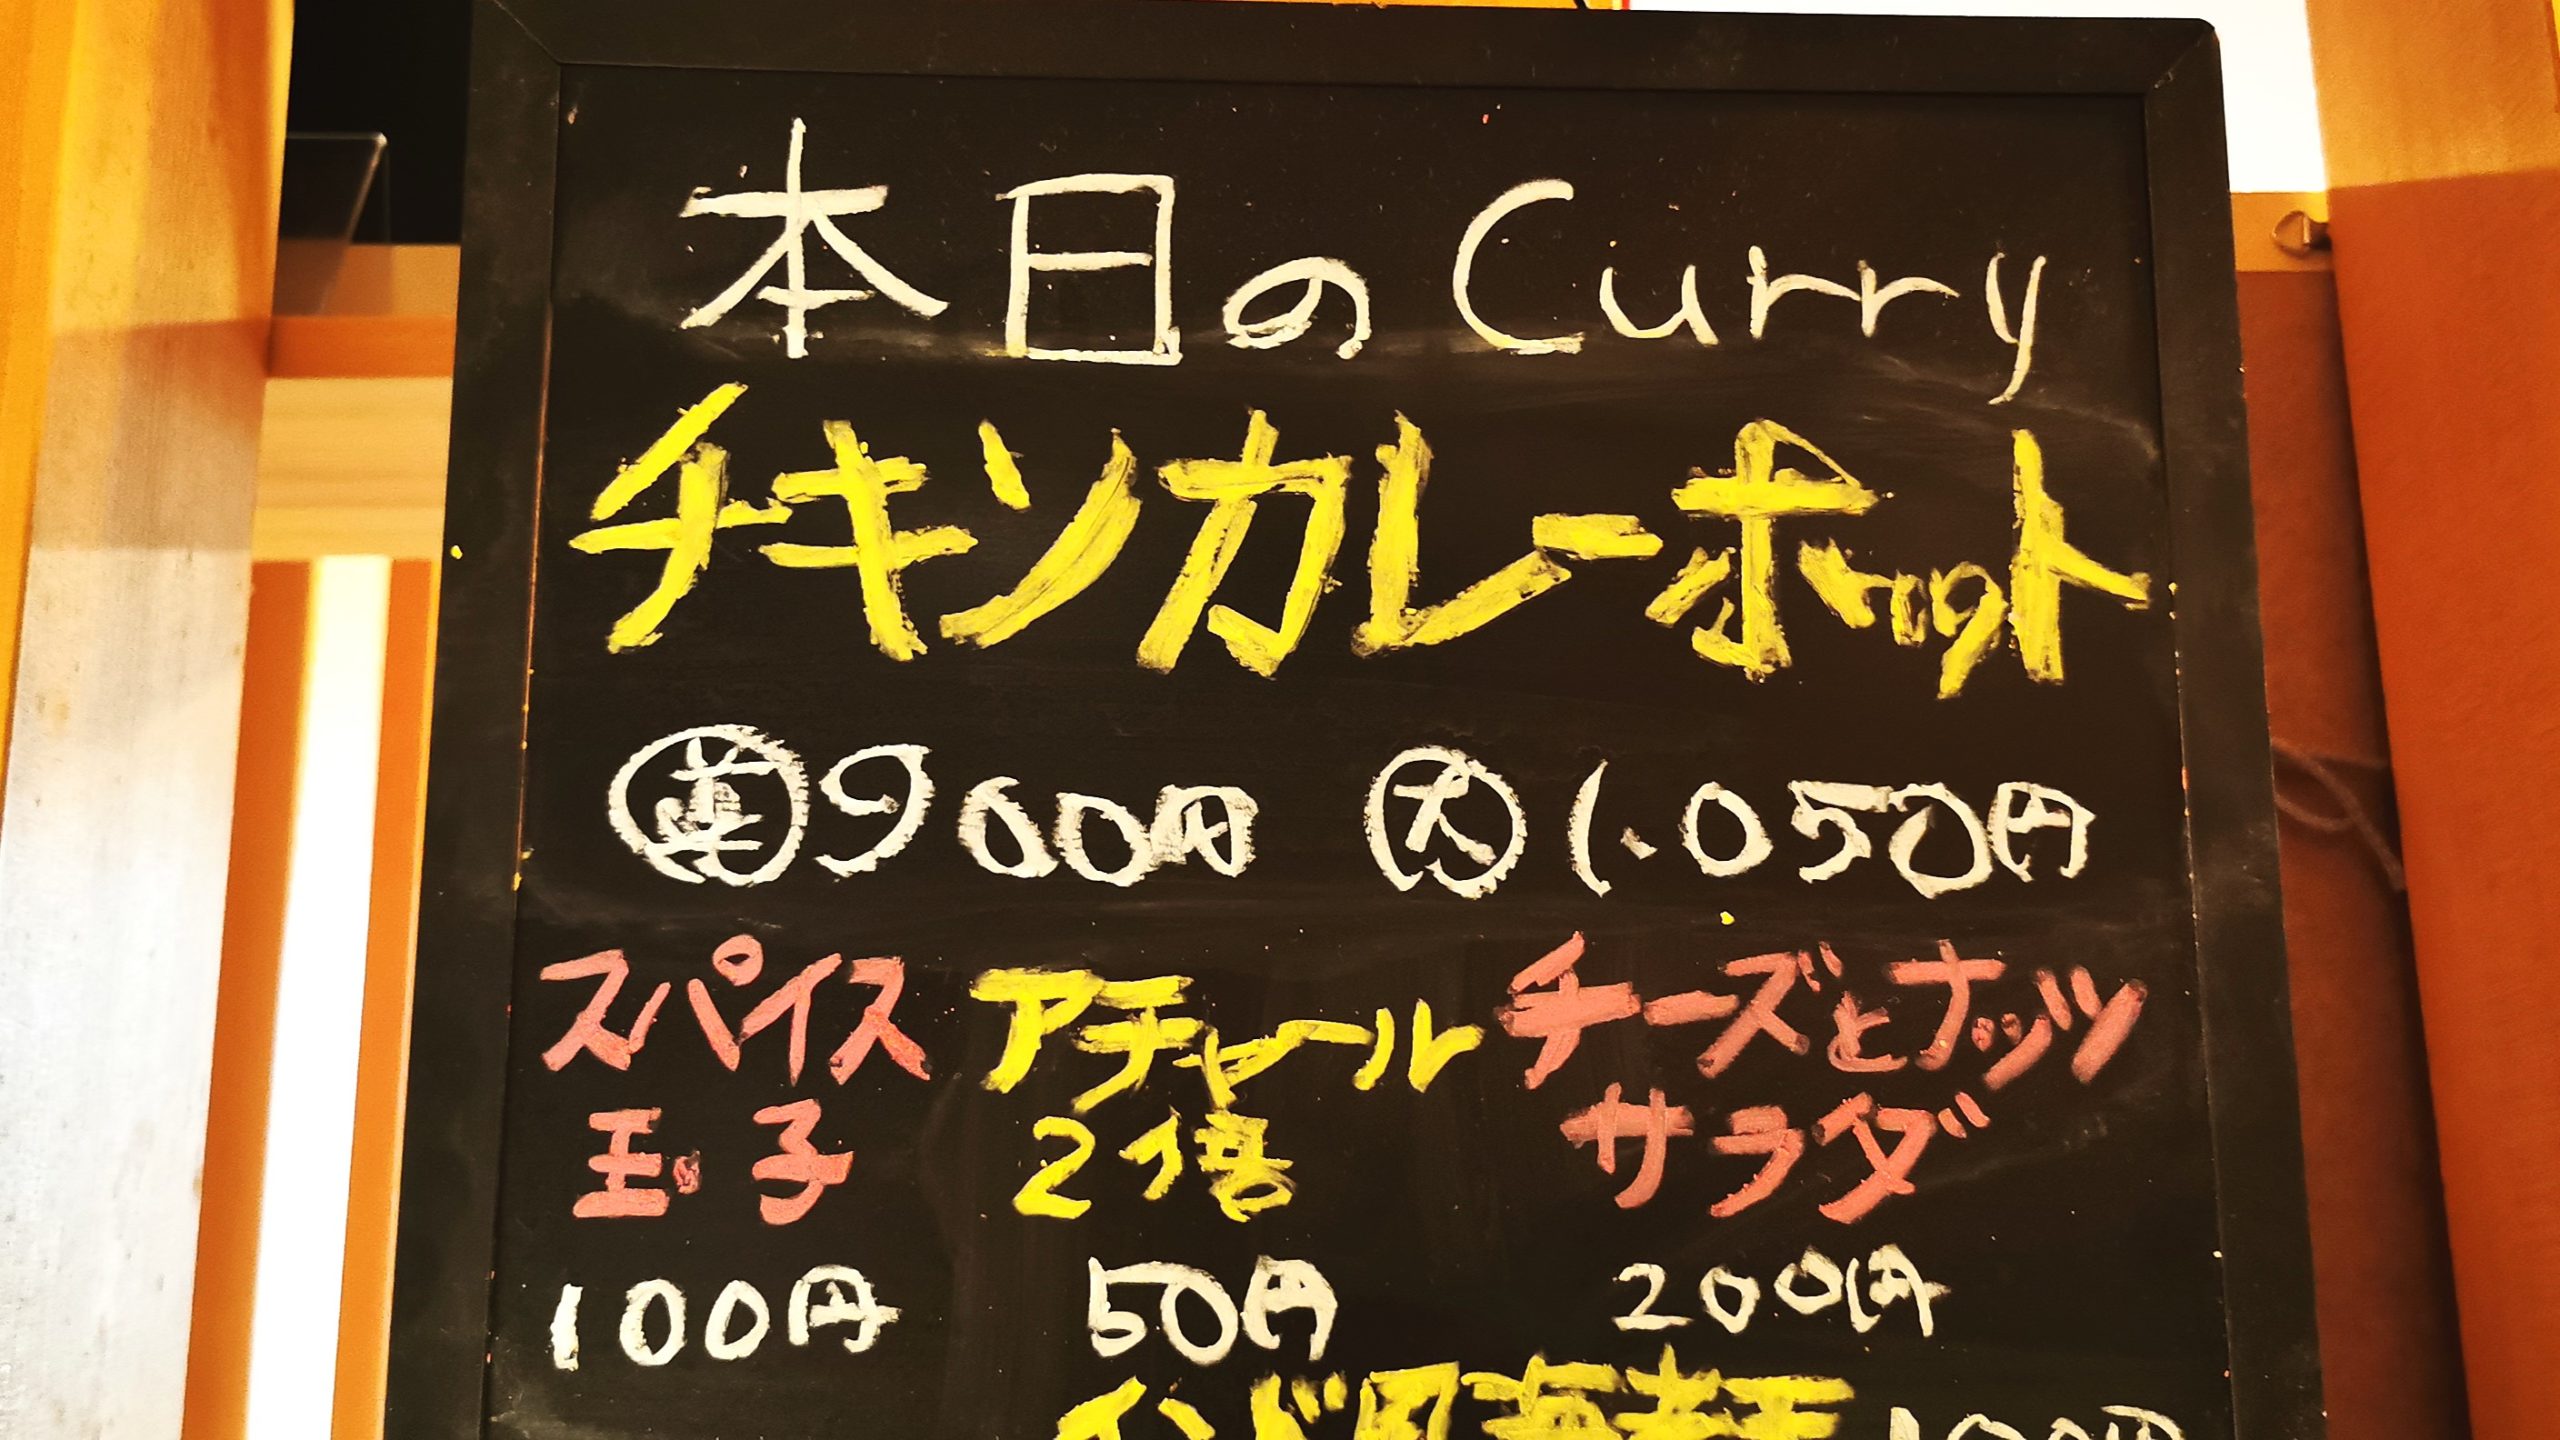 本日のCurry
チキンカレーホット
900円 大 1,050円
スパイス アチャール チーズとナッツ
玉子 2倍 サラダ
100円 50円 200円
インド風海老天